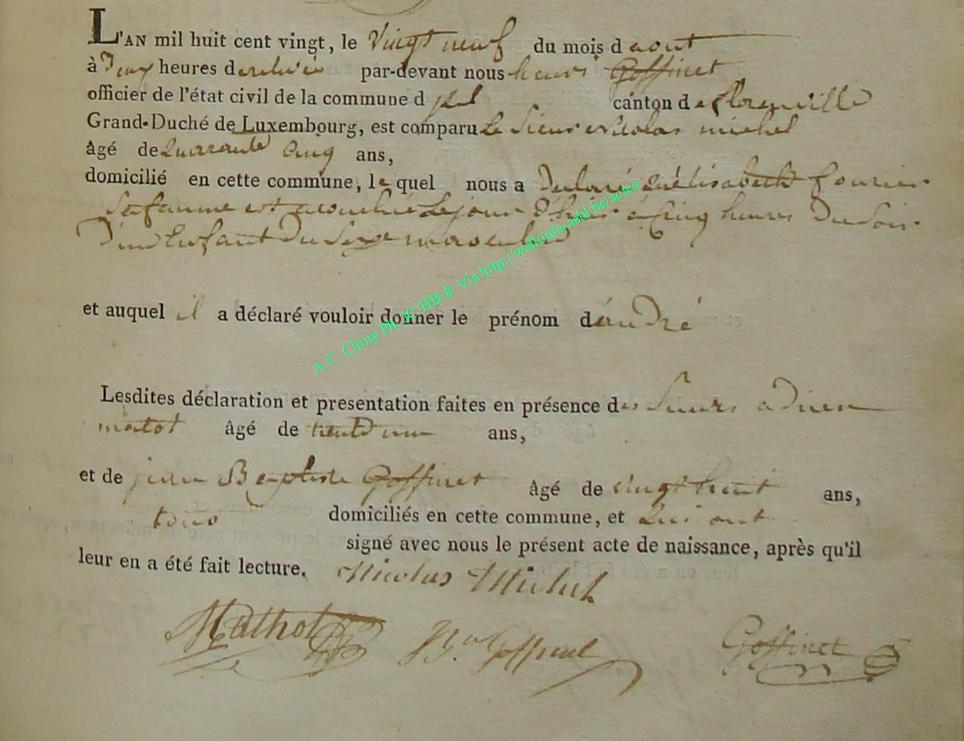 L'AN mil huit cent vingt, le vingt neuf du mois d aout
à deux heures de relevée par-devant nous henri Goffinet
officier de l'état civil de la commune d canton de florenville
Grand-Duché de Luxembourg, est comparu le Sieur nicolas michel
âgé de quarante cinq ans,
domicilié en cette commune, le quel nous a declaré qu'elisabeth fourier
sa famme est acouchée le jour d'hier à cinq heures du soir
d'un enfant du sexe masculin
et auquel il a déclaré vouloir donner le prénom d'andré
Lesdites déclaration et presentation faites en présence des Sieurs
matot âgé de trente une ans,
et de jean Baptiste Goffinet âgé de vingt huit ans,
tous domiciliés en cette commune, et qui ont
signé avec nous le présent acte de naissance, après qu'il
leur en a été fait lecture.
Nicolas Michel
Mathot Goffinet Goffinet
A.C. Chiny Via http://wallonia-asbl.be/actes